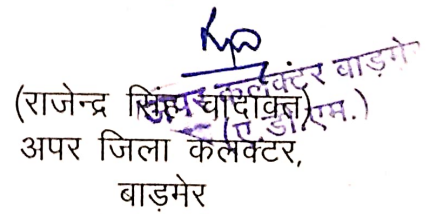 अपर कलक्टर बाड़मेर
(ए.डी.एम.)
(राजेन्द्र सिंह चांदावत)
अपर जिला कलेक्टर,
बाड़मेर